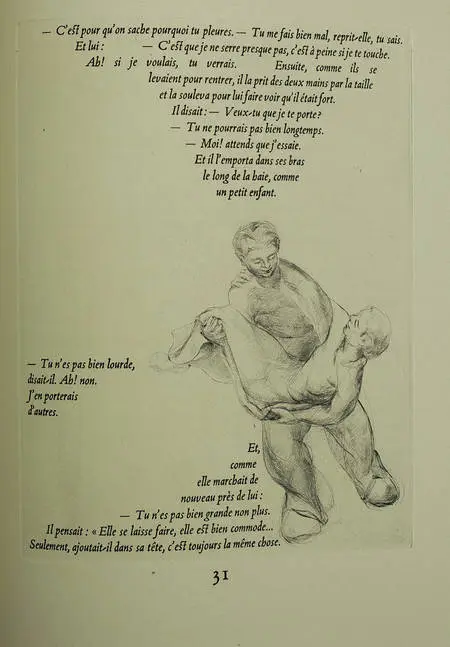 — C'est pour qu'on sache pourquoi tu pleures. — Tu me fais bien mal, reprit-elle, tu sais.
Et lui : — C'est que je ne serre presque pas, c'est à peine si je te touche.
Ah! si je voulais, tu verrais. Ensuite, comme ils se
levaient pour rentrer, il la prit des deux mains par la taille
et la souleva pour lui faire voir qu'il était fort.
Il disait : — Veux-tu que je te porte?
— Tu ne pourrais pas bien longtemps.
— Moi! attends que j'essaie.
Et il l'emporta dans ses bras
le long de la haie, comme
un petit enfant.
— Tu n'es pas bien lourde,
disait-il. Ah! non.
J'en porterais
d'autres.
Et,
comme
elle marchait de
nouveau près de lui :
— Tu n'es pas bien grande non plus.
Il pensait : « Elle se laisse faire, elle est bien commode...
Seulement, ajoutait-il dans sa tête, c'est toujours la même chose.
31